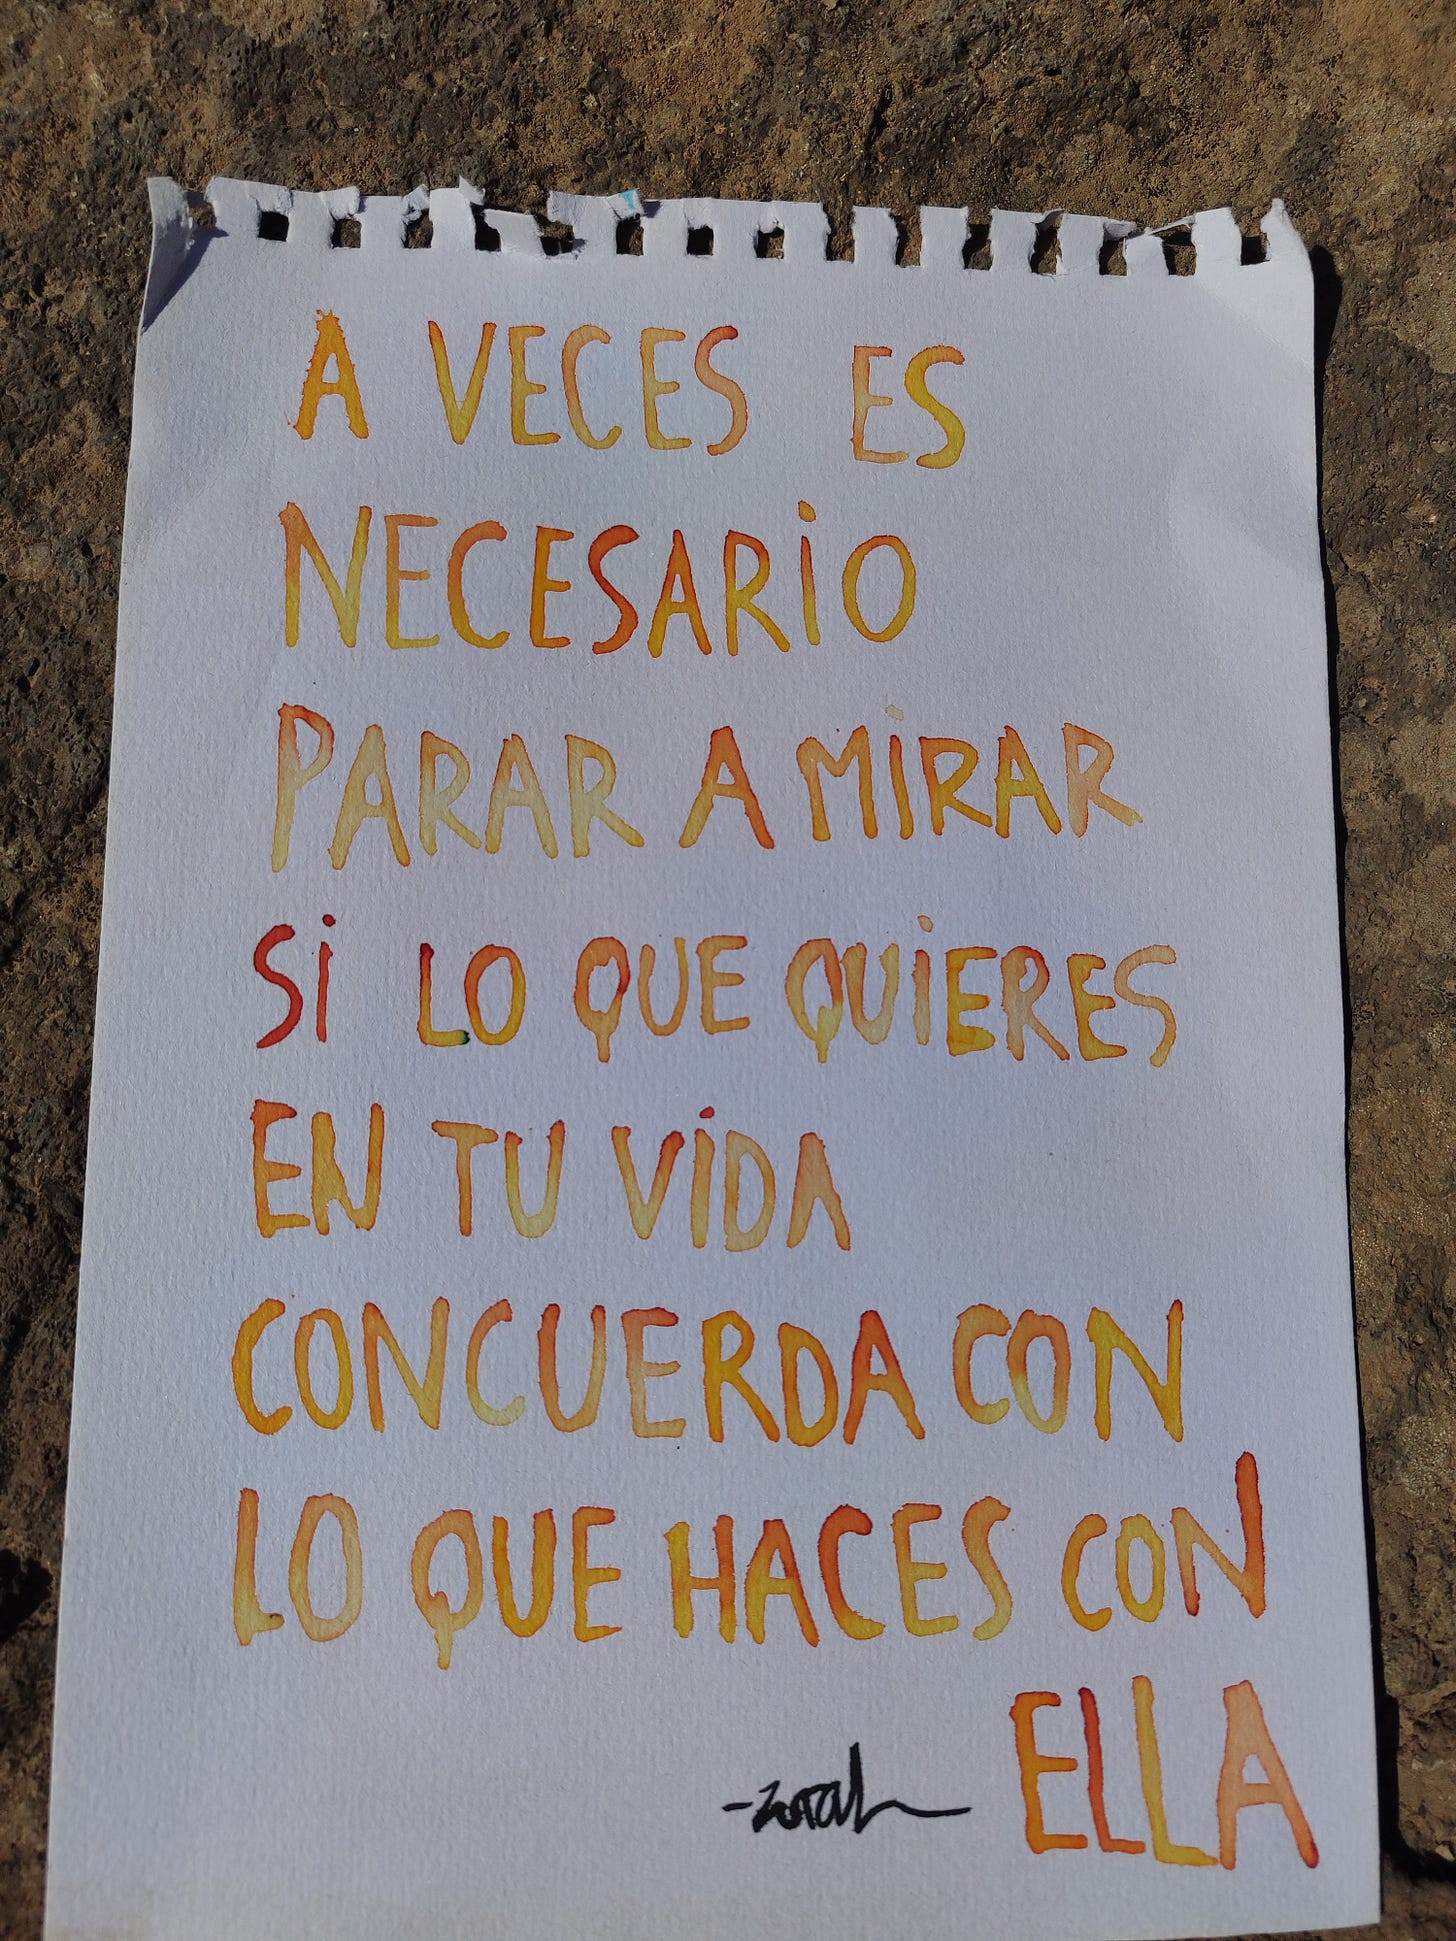 A VECES ES
NECESARIO
PARAR A MIRAR
Si LO QUE QUIERES
EN TU ViDA
CONCUERDA CON
LO QUE HACES CON
ELLA